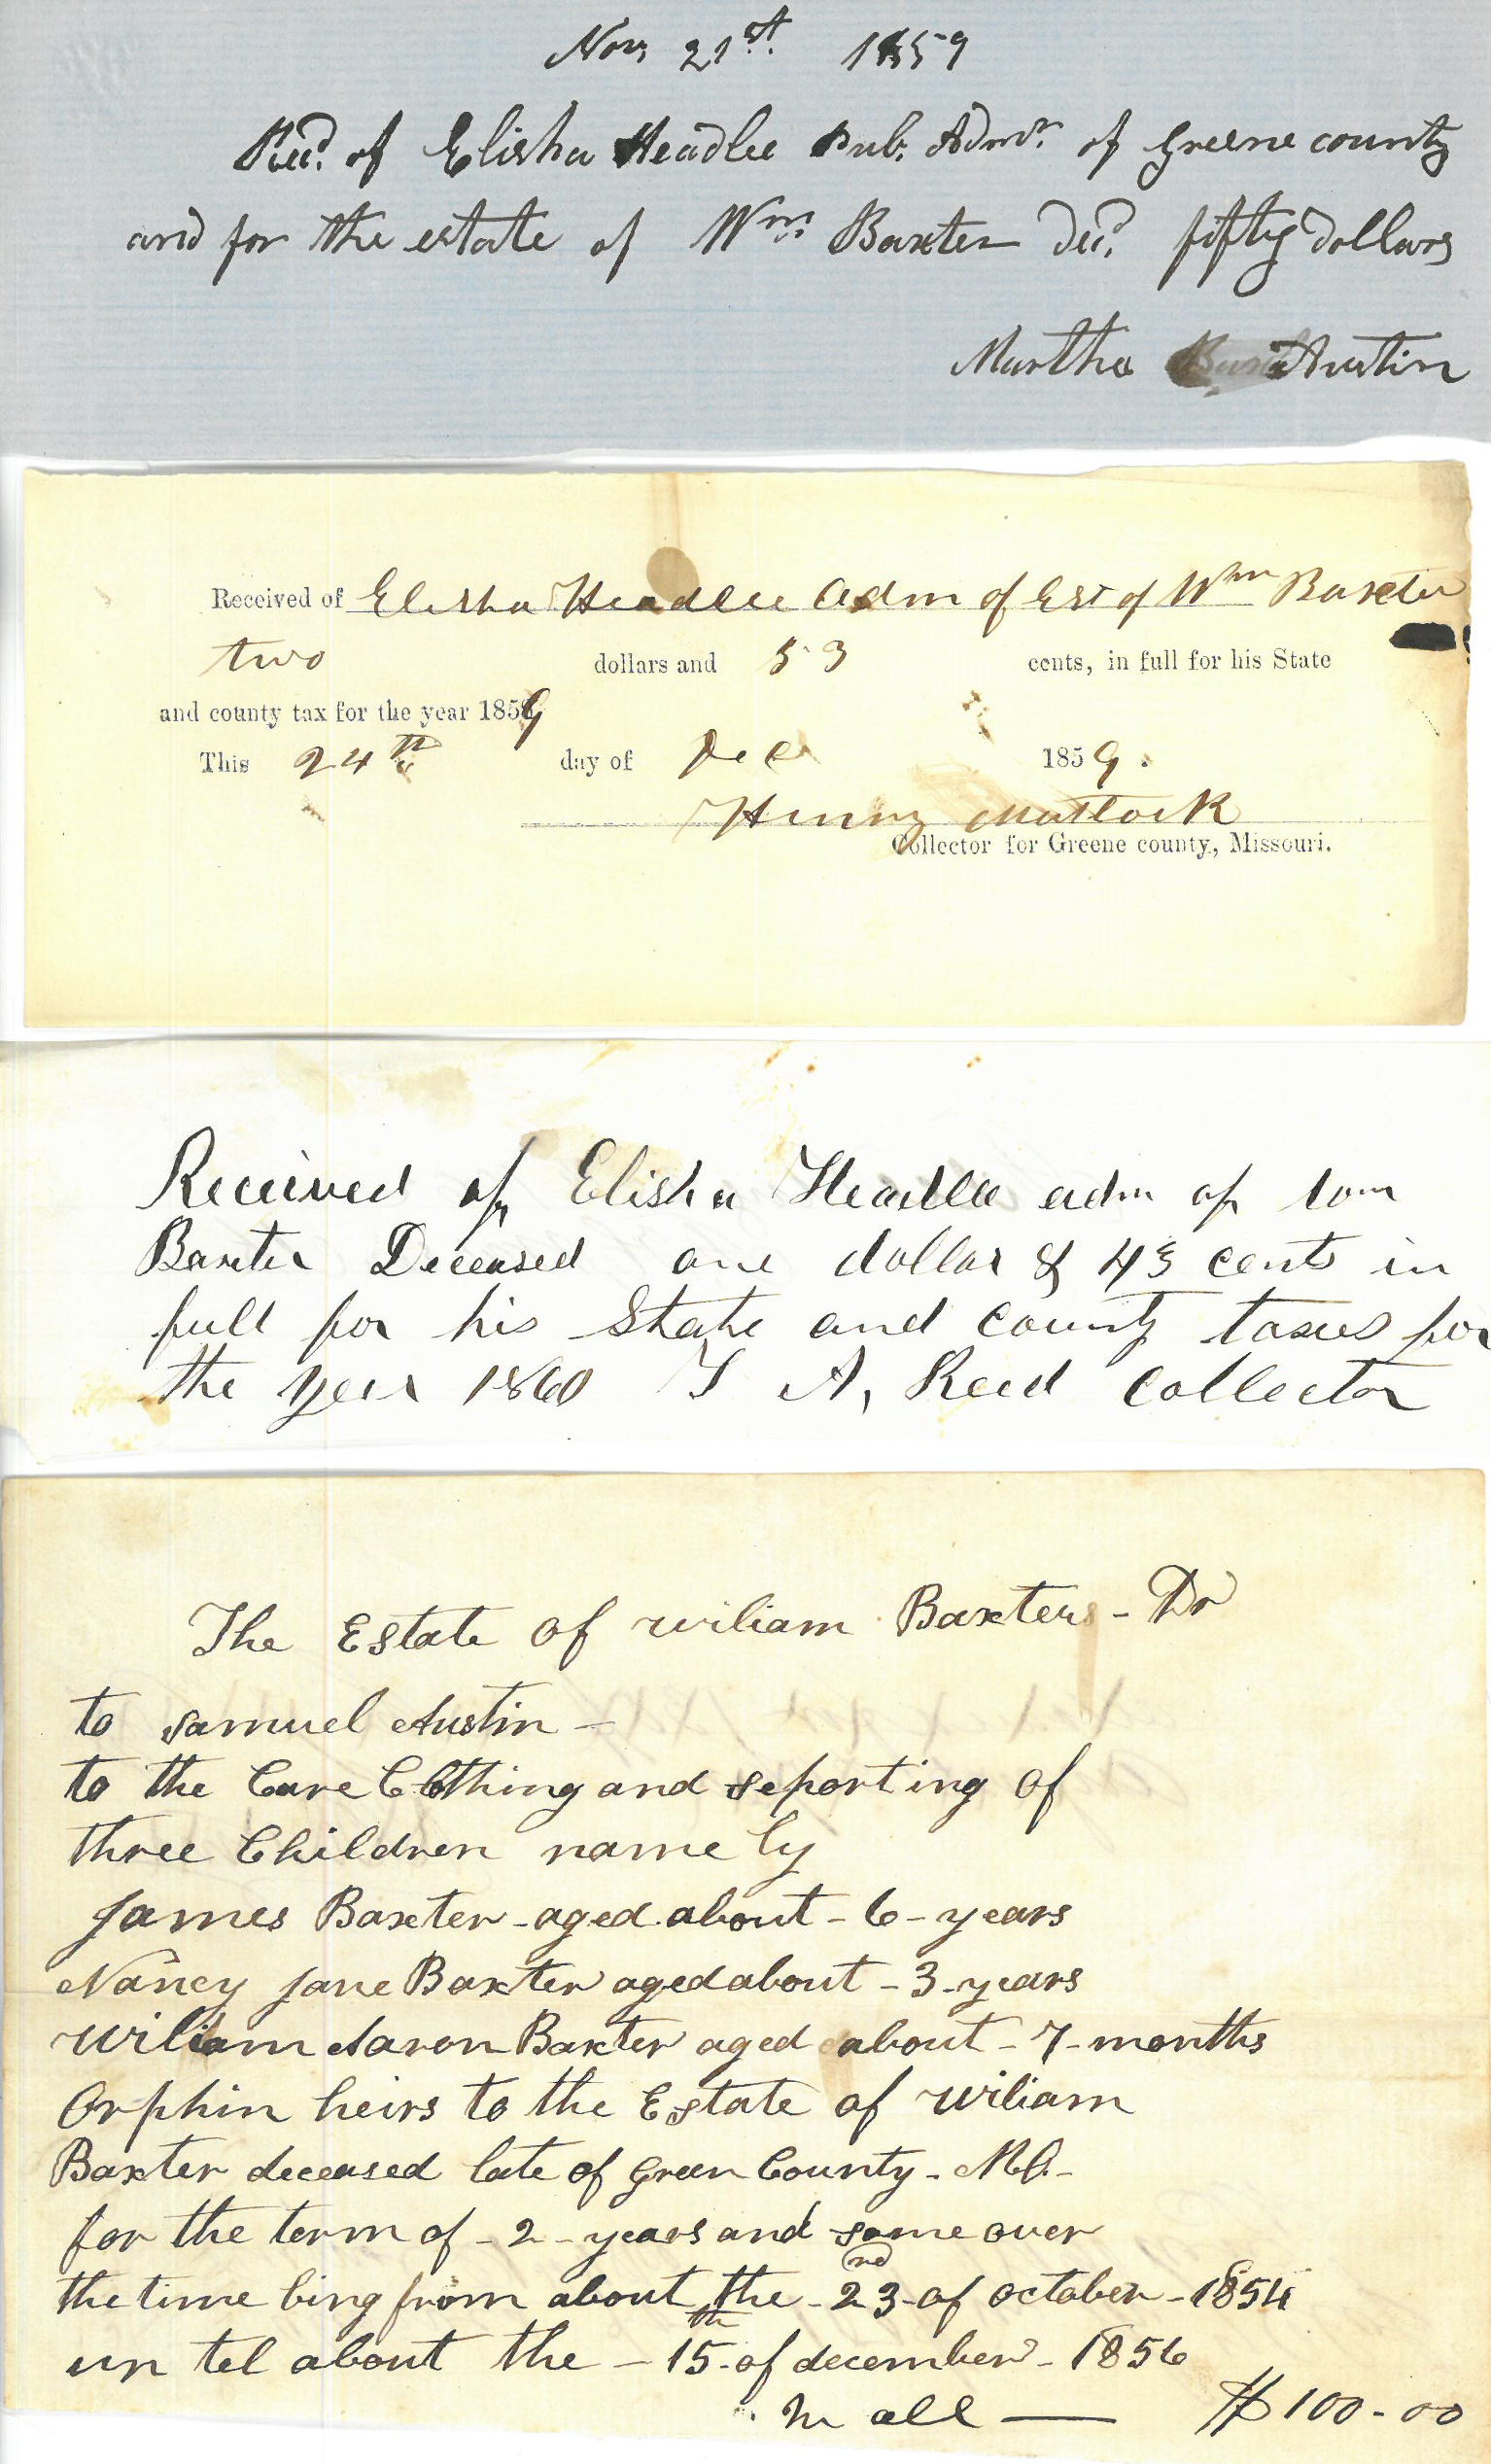 Nov 21st. 1859
Recd. of Elisha Headlee Pub. Admr. of Greene county
and for the estate of Wm. Baxter decd. fifty dollars
Martha Austin
Received of Elisha Headlee Adm of Est of Wm Baxter
two dollars and 53 cents, in full for his State
and county tax for the year 1859
This 24th day of Dec 1859.
Henry Matlock
Collector for Greene county, Missouri.
Received of Elisha Headlee adm of Wm
Baxter Deceased one dollar & 43 cents in
full for his State and County taxes for
the year 1860 T A, Reed Collector
The Estate of wiliam Baxters - Dr
to Samuel Austin -
to the Care Clothing and seporting of
three Children name ly
James Baxter - aged about - 6 - years
Nancy Jane Baxter aged about - 3 - years
wiliam Aaron Baxter aged about - 7 - months
Orphin heirs to the Estate of wiliam
Baxter deceased late of Green County - MO. -
for the term of - 2 - years and some over
the time bing from about the - 23rd of october - 1854
un tel about the - 15th of december - 1856
In all — $100-00